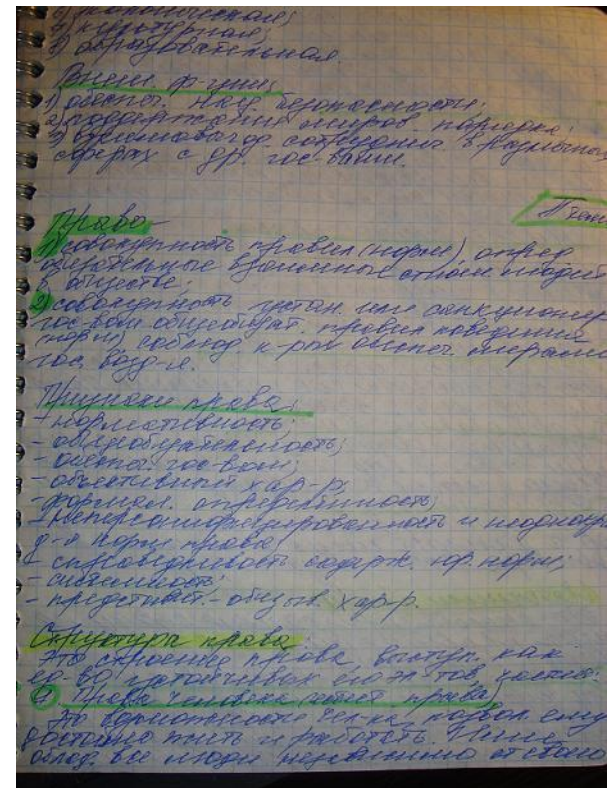 6) экологическая;
7) культурная;
8) образовательная.
Внеш. ф-ции:
1) обеспеч. нац. безопасности;
2) поддержания миров. порядка;
3) взаимовыгод. сотруднич. в различных
сферах с др. гос-вами.
Право -
1) совокупность правил (норм), опред
обязательные взаимные отнош. людей
в обществе;
2) совокупность устан. или санкционир
гос-вом общеобязат. правил поведения
(норм) соблюд. к-рых обеспеч. мерами
гос. возд-я.
Признаки права:
- нормативность;
- общеобязательность;
- обеспеч. гос-вом;
- объективный хар-р;
- формал. определённость;
- неперсонифицированность и неоднокр
д-я норм права
- справедливость содерж. юр. норм;
- системность;
- представит.-обязыв. хар-р.
Структура права:
Это строение права, выступ. как
ед-во устойчивых его эл-тов, частей:
1) Права человека
Это возможности чел-ка, позвол. ему
достойно жить и работать. Ими
облад. все люди независимо от своего